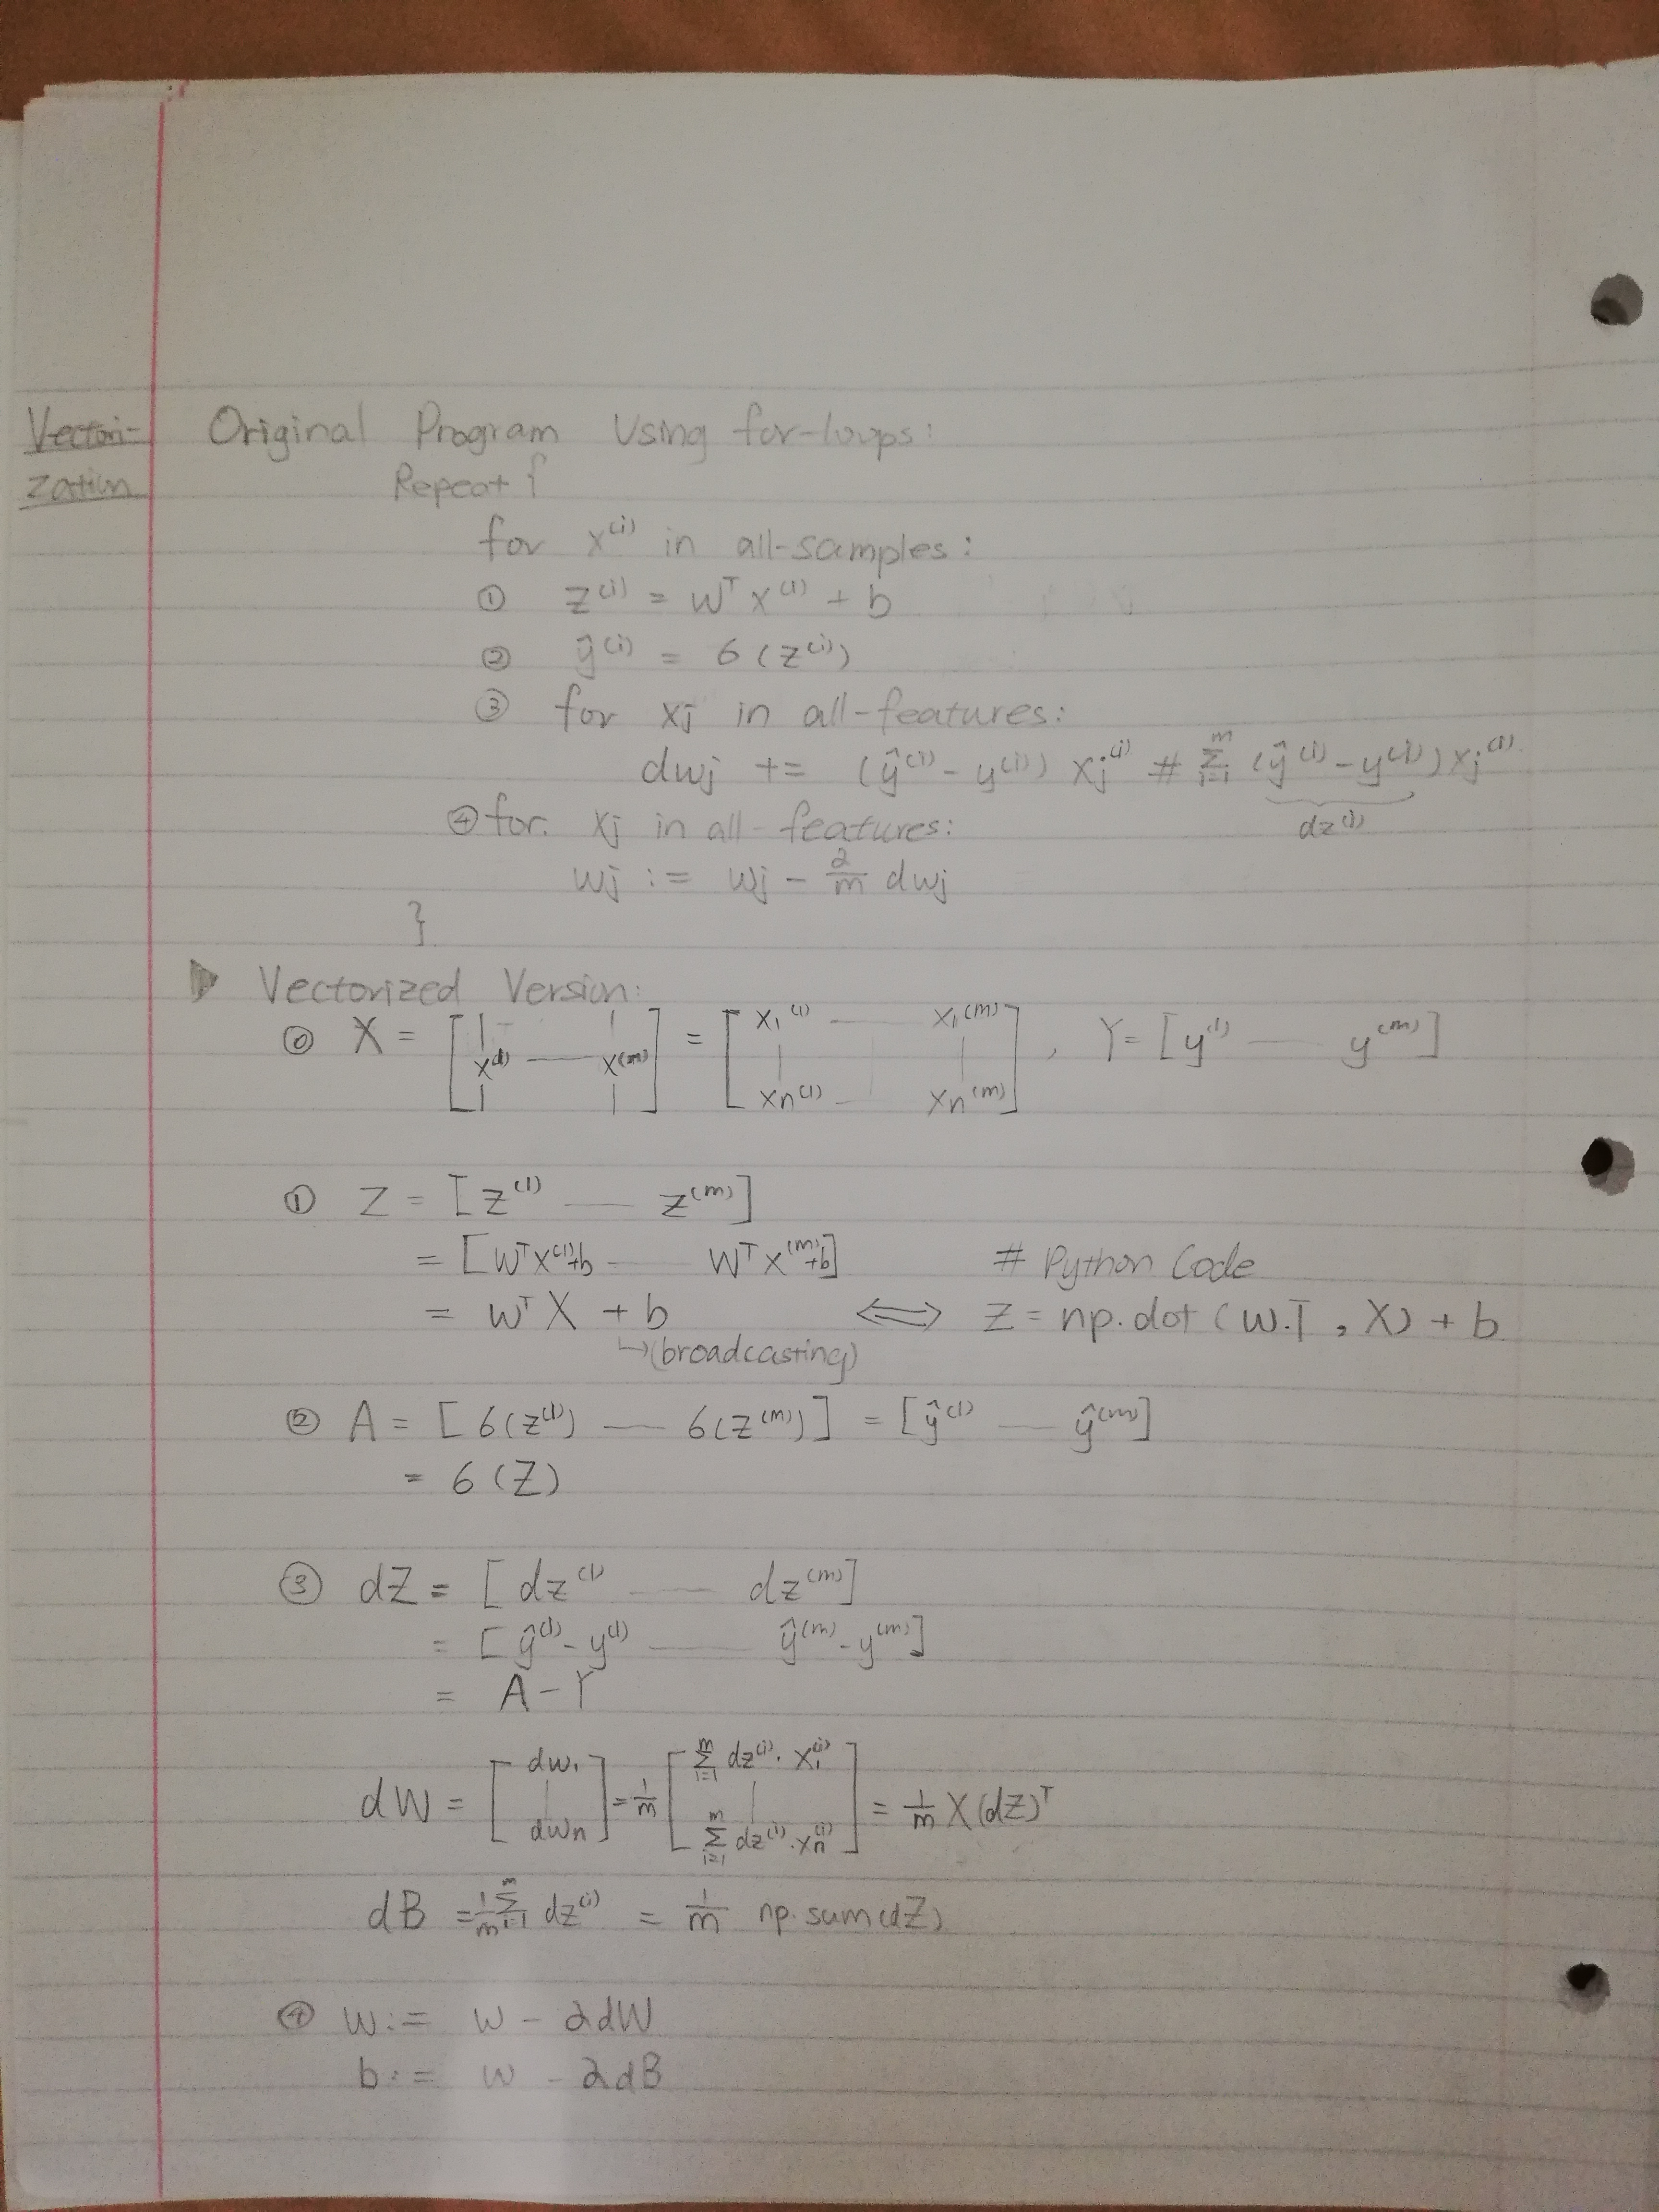 Vectori-
zation
Original Program Using for-loops:
Repeat {
for x⁽ⁱ⁾ in all-samples:
① z⁽ⁱ⁾ = Wᵀ x⁽ⁱ⁾ + b
② ŷ⁽ⁱ⁾ = σ(z⁽ⁱ⁾)
③ for xj in all-features:
dwj += (ŷ⁽ⁱ⁾ - y⁽ⁱ⁾) xj⁽ⁱ⁾ # Σᵢ₌₁ᵐ (ŷ⁽ⁱ⁾ - y⁽ⁱ⁾) xj⁽ⁱ⁾
dz⁽ⁱ⁾
④ for xj in all-features:
wj := wj - α/m dwj
}
Vectorized Version:
⓪ X = [x⁽¹⁾ — x⁽ᵐ⁾] = [x₁⁽¹⁾ — x₁⁽ᵐ⁾ xn⁽¹⁾ — xn⁽ᵐ⁾], Y = [y⁽¹⁾ — y⁽ᵐ⁾]
① Z = [z⁽¹⁾ — z⁽ᵐ⁾]
= [Wᵀx⁽¹⁾+b — Wᵀx⁽ᵐ⁾+b] # Python Code
= Wᵀ X + b ⟺ Z = np.dot(W.T, X) + b
↳(broadcasting)
② A = [σ(z⁽¹⁾) — σ(z⁽ᵐ⁾)] = [ŷ⁽¹⁾ — ŷ⁽ᵐ⁾]
= σ(Z)
③ dZ = [dz⁽¹⁾ — dz⁽ᵐ⁾]
= [ŷ⁽¹⁾ - y⁽¹⁾ — ŷ⁽ᵐ⁾ - y⁽ᵐ⁾]
= A - Y
dW = [dw₁ | dwn] = 1/m [Σᵢ₌₁ᵐ dz⁽ⁱ⁾·x₁⁽ⁱ⁾ | Σᵢ₌₁ᵐ dz⁽ⁱ⁾·xn⁽ⁱ⁾] = 1/m X(dZ)ᵀ
dB = 1/m Σᵢ₌₁ᵐ dz⁽ⁱ⁾ = 1/m np.sum(dZ)
④ W := W - αdW
b := w - αdB